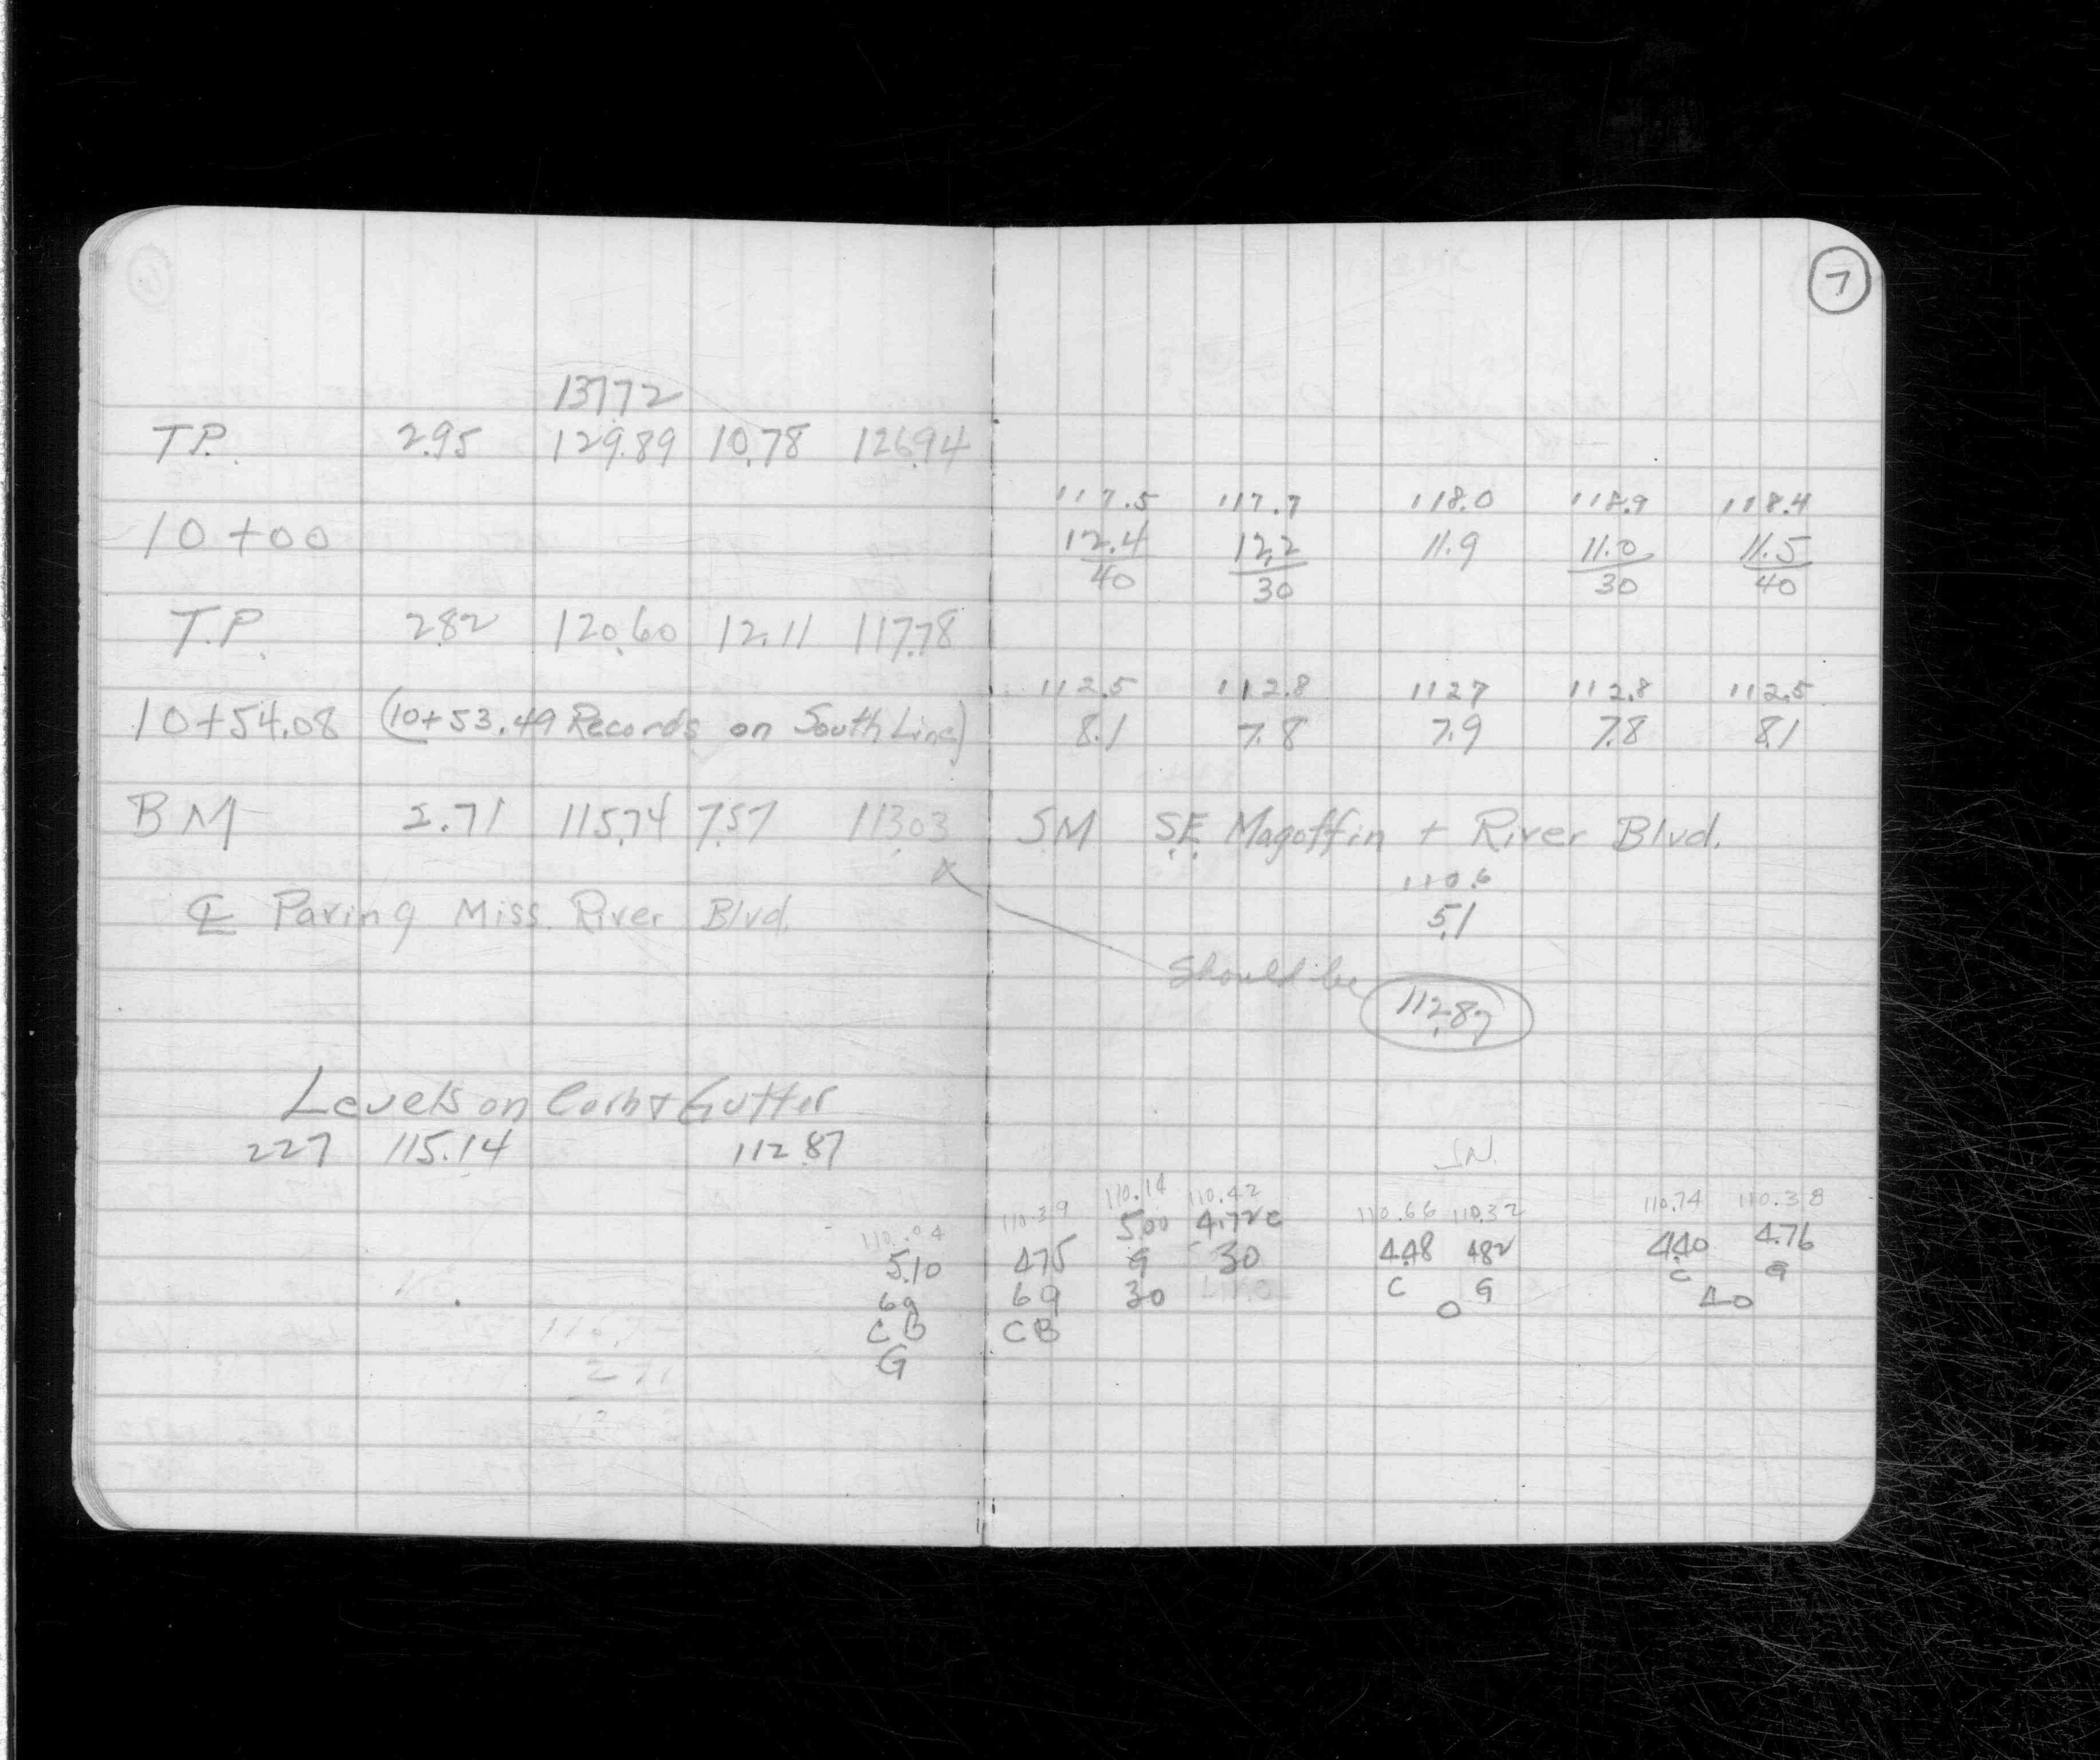 7
137.72
T.P. 2.95 129.89 10.78 126.94
117.5 117.7 118.0 118.9 118.4
10+00 12.4 12.2 11.9 11.0 11.5
40 30 30 40
T.P. 2.82 120.60 12.11 117.78
112.5 112.8 112.7 112.8 112.5
10+54.08 (10+53.49 Records on South Line) 8.1 7.8 7.9 7.8 8.1
BM 2.71 115.74 7.57 113.03 SM S.E. Magoffin + River Blvd.
x 110.6
℄ Paving Miss. River Blvd. 5.1
Should be 112.87
Levels on Curb & Gutter
2.27 115.14 112.87
110.04 110.39 110.14 110.42 110.66 110.32 110.74 110.38
5.10 4.75 5.00 4.72 C 4.48 4.82 4.40 4.76
69 69 G 30 C G C G
CB CB 30 0 40
G